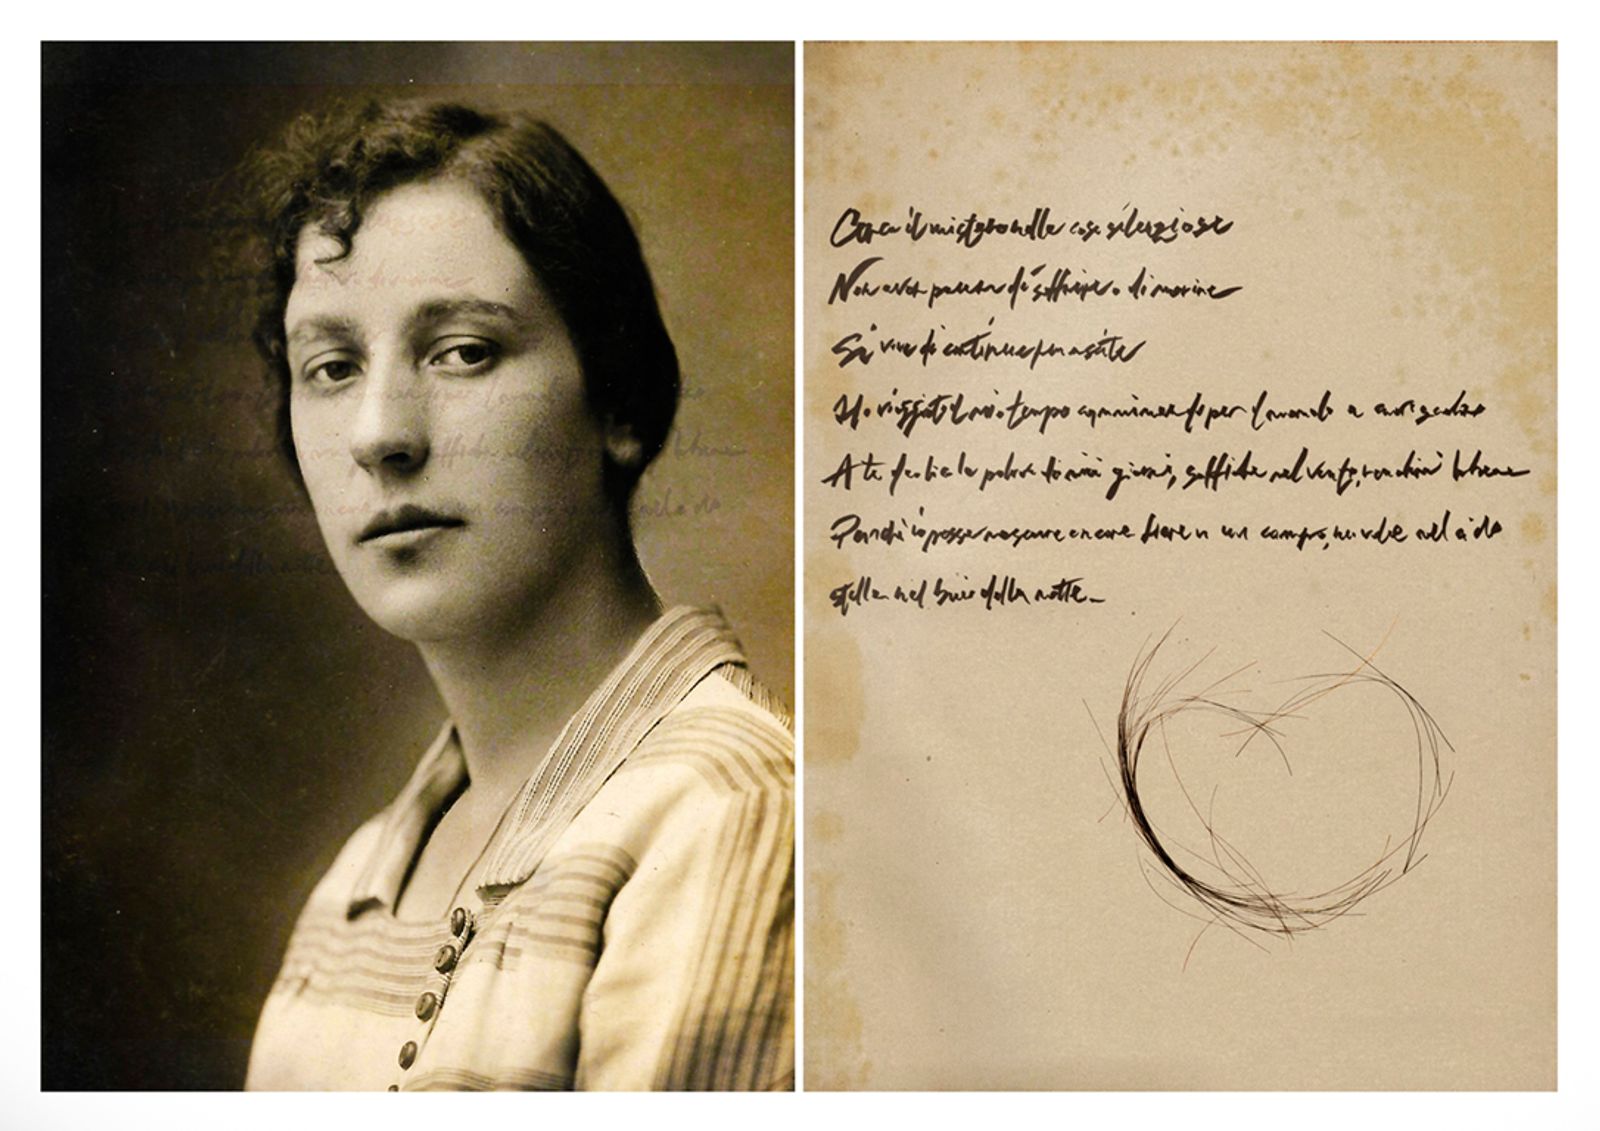 Cerca il mistero nelle cose silenziose
Non aver paura di soffrire o di morire
Si vive di continue rinascite
Ho viaggiato il mio tempo camminando per il mondo a
A te la polvere dei miei giorni, soffiala nel vento, libera
Perché io possa nascere ancora fiore in un campo, nuvola nel cielo
stella nel buio della notte